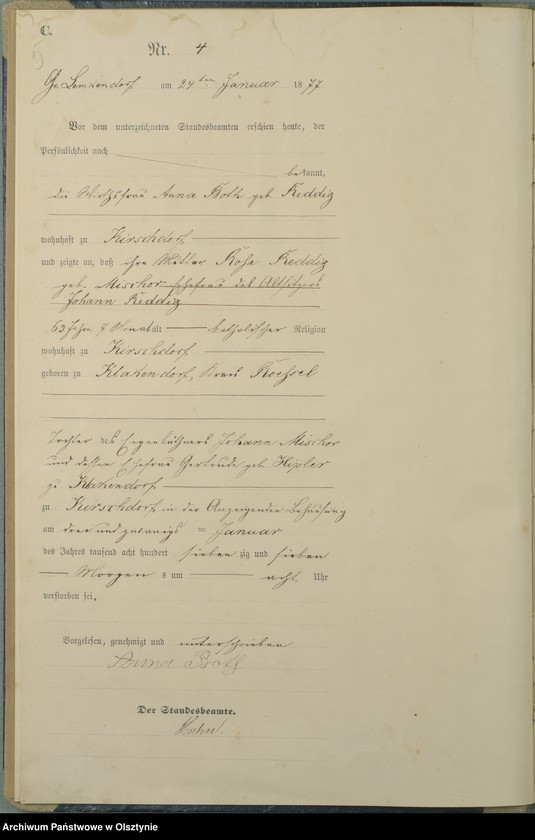 C.
Nr. 4
Gr. Lemkendorf am 24ten Januar 1877
Vor dem unterzeichneten Standesbeamten erschien heute, der
Persönlichkeit nach
bekannt,
die Wirthsfrau Anna Both geb Reddig
wohnhaft zu Kirschdorf
und zeigte an, daß ihre Mutter Rosa Reddig
geb. Mischor Ehefrau des Altsitzers
Johann Reddig
63 Jahre 7 Monat alt katholischer Religion
wohnhaft zu Kirschdorf
geboren zu Klakendorf, Kreis Roessel
Tochter des Eigenkäthners Johann Mischor
und dessen Ehefrau Gertrude geb. Hipler
zu Klakendorf
zu Kirschdorf in der Anzeigenden Behausung
am drei und zwanzigs ten Januar
des Jahres tausend acht hundert sieben zig und sieben
Morgens um acht Uhr
verstorben sei.
Vorgelesen, genehmigt und unterschrieben
Anna Both
Der Standesbeamte.
Archiwum Państwowe w Olsztynie